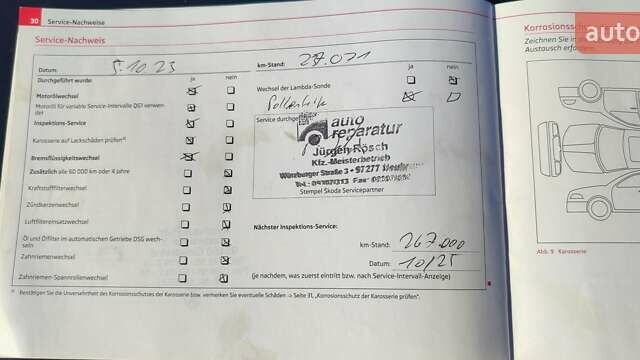 30 Service-Nachweise
Service-Nachweis
Datum: 5.10.23
Durchgeführt wurde: ja nein
Motorölwechsel
Motoröl für variable Service-Intervalle QG1 verwendet
Inspektions-Service
Karosserie auf Lackschäden prüfen
Bremsflüssigkeitswechsel
Zusätzlich alle 60 000 km oder 4 Jahre
Kraftstofffilterwechsel
Zündkerzenwechsel
Luftfiltereinsatzwechsel
Öl und Ölfilter im automatischen Getriebe DSG wech-
seln
Zahnriemenwechsel
Zahnriemen-Spannrollenwechsel
km-Stand:
ja nein
Wechsel der Lambda-Sonde
Service durchge
auto
reparatur
Jürgen Rösch
Kfz.-Meisterbetrieb
Würzburger Straße 3 • 97277
Stempel Skoda Servicepartner
Nächster Inspektions-Service:
km-Stand: 267.000
Datum: 10/25
(je nachdem, was zuerst eintritt bzw. nach Service-Intervall-Anzeige)
Bestätigen Sie die Unversehrtheit des Korrosionsschutzes der Karosserie bzw. vermerken Sie eventuelle Schäden → Seite 31, „Korrosionsschutz der Karosserie prüfen".
Korrosionssch
Zeichnen Sie in
Austausch erfor
Abb. 9 Karosserie
auto